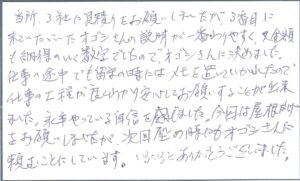 当所、3社に見積りをお願いしましたが3番目に
来ていただいたオゴシさんの説明が一番わかりやすく又金額
も納得のいく数字でしたので、オゴシさんに決めました。
仕事の途中でも留守の時にはメモを置いていかれたので
仕事の工程が良くわかり安心してお願いすることが出来
ました。永年やっている自信を感じました。今回は屋根
をお願いしましたが次回壁の時にもオゴシさんに
頼むことにしています。いろいろとありがとうございました。